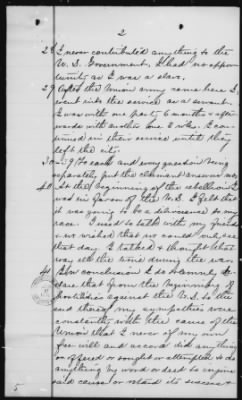 2
28 I never contributed anything to the
U. S. Government. I had no oppor
tunity as I was a slave.
29 After the Union army came here I
went into the service as a servant.
I was with one party 6 months & after
wards with another one 2 wks. I con
tinued in their service until they
left the city.
30 - 39 To each and every question being
separately put the claimant answered no.
40 At the beginning of the rebellion I
was in favor of the U.S. I felt that
it was going to be a deliverance to my
race. I used to talk with my friends
& we wished that we could only see
that day. I talked & thought that
way all the time during the war.
41 In conclusion I do solemnly de
clare that from the beginning of
hostilities against the U.S. to the
end thereof my sympathies were
constantly with the cause of the
Union that I never of my own
free will and accord did anything
or offered or sought or attempted to do
anything by word or deed to injure
said cause or retard its success &
5